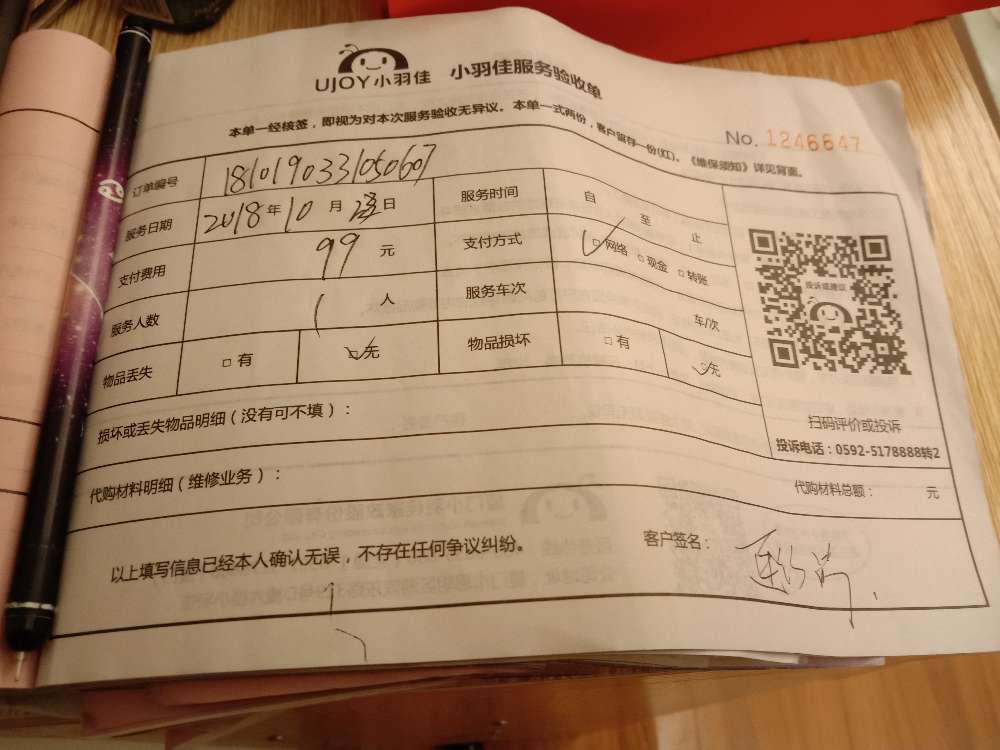 UJOY小羽佳 小羽佳服务验收单
本单一经核签，即视为对本次服务验收无异议。本单一式两份，客户留存一份(红)。《维保须知》详见背面。
No. 1246647
订单编号 1810190331050607
服务日期 2018年10月 日 服务时间 自 至 止
支付费用 99 元 支付方式 □网络 □现金 □转账
服务人数 1 人 服务车次 车/次
物品丢失 □有 □无 物品损坏 □有 □无
投诉或建议
扫码评价或投诉
投诉电话：0592-5178888转2
损坏或丢失物品明细（没有可不填）：
代购材料明细（维修业务）： 代购材料总额： 元
以上填写信息已经本人确认无误，不存在任何争议纠纷。 客户签名：